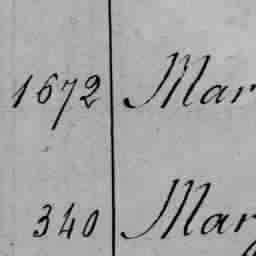 1672 Mar
340 Mary